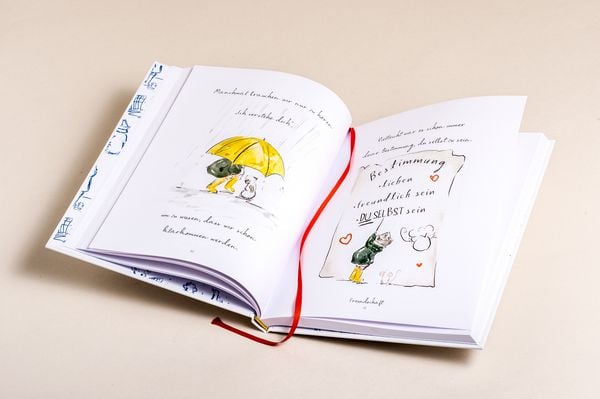 Manchmal brauchen wir nur zu hören
„Ich verstehe dich“
um zu wissen, dass wir schon
klarkommen werden.
Vielleicht war es schon immer
deine Bestimmung, du selbst zu sein.
Bestimmung
. lieben
. freundlich sein
. DU SELBST sein
Freundschaft